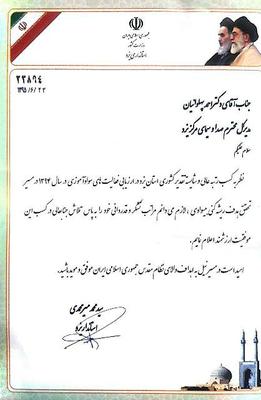 جمهوری اسلامی ایران
وزارت کشور
استانداری یزد
۲۲۸۹۴
۱۳۹۵/۶/۲۳
جناب آقای دکتر احمد پهلوانیان
مدیرکل محترم صدا و سیمای مرکز یزد
سلام علیکم
نظر به کسب رتبه عالی و شایسته تقدیر کشوری استان یزد در ارزیابی فعالیت های سوادآموزی در سال ۱۳۹۴ در مسیر
تحقق هدف ریشه کنی بیسوادی، لازم می دانم مراتب تشکر و قدردانی خود را به پاس تلاش جنابعالی در کسب این
موفقیت ارزشمند اعلام نمایم.
امید است در مسیر نیل به اهداف والای نظام مقدس جمهوری اسلامی ایران موفق و موید باشید.
سید محمد میرمحمدی
استاندار یزد